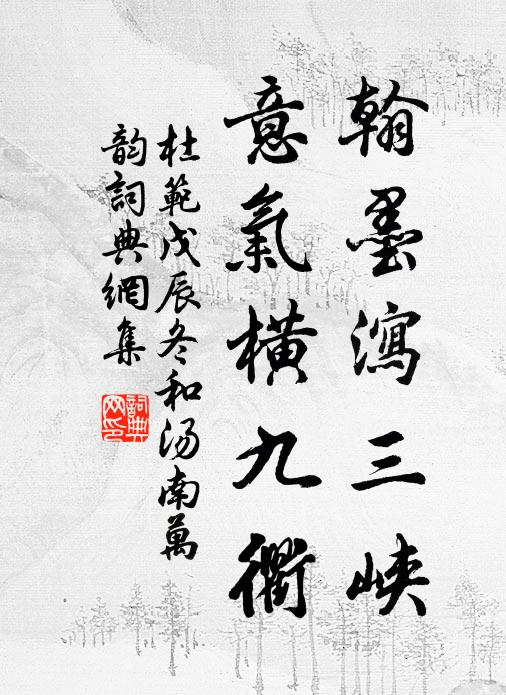 翰墨瀉三峽
意氣橫九衢
杜範戊辰冬和湯南萬
韵詞典網集
詞典
网印